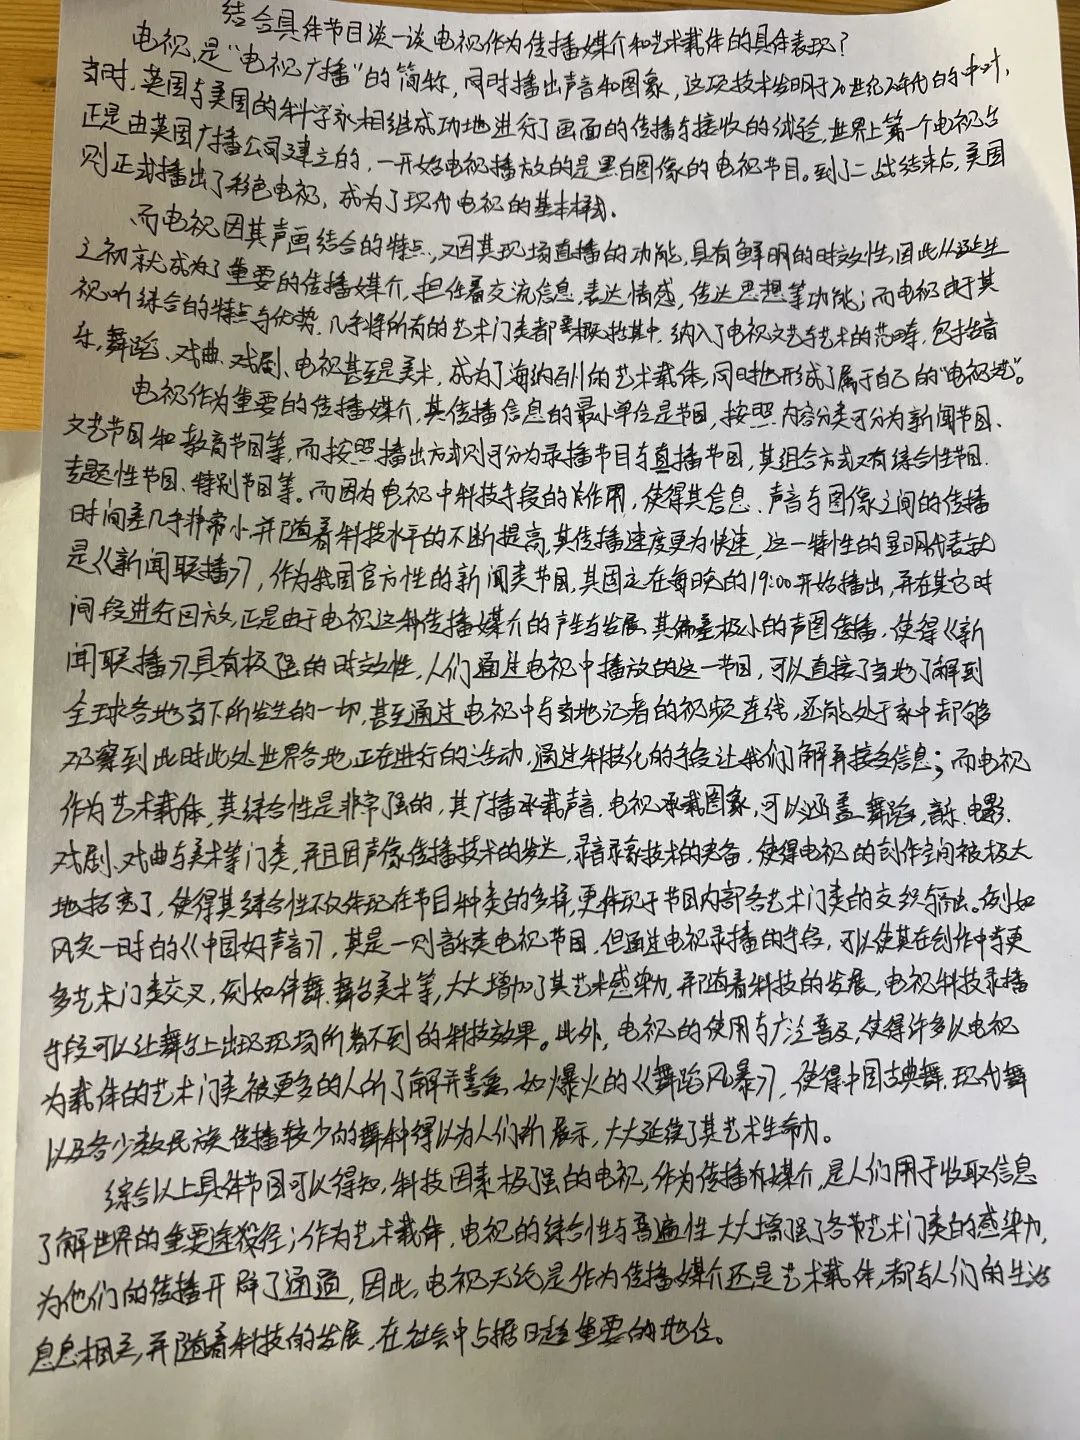 结合具体节目谈一谈电视作为传播媒介和艺术载体的具体表现?
电视,是“电视广播”的简称,同时播出声音和图象,这项技术发明于20世纪20年代的中叶,
当时,英国与美国的科学家相继成功地进行了画面的传播与接收的试验,世界上第一个电视台
正是由英国广播公司建立的,一开始电视播放的是黑白图像的电视节目。到了二战结束后,美国
则正式播出了彩色电视,成为了现代电视的基本样式.
而电视因其声画结合的特点,又因其现场直播的功能,具有鲜明的时效性,因此从诞生
之初就成为了重要的传播媒介,担任着交流信息,表达情感,传达思想等功能;而电视由于其
视听综合的特点与优势,几乎将所有的艺术门类都概括其中,纳入了电视文艺与艺术的范畴,包括音
乐,舞蹈、戏曲、戏剧、电视甚至是美术,成为了海纳百川的艺术载体,同时也形成了属于自己的“电视流”。
电视作为重要的传播媒介,其传播信息的最小单位是节目,按照内容分类可分为新闻节目、
文艺节目和教育节目等,而按照播出方式则可分为录播节目与直播节目,其组合方式又有综合性节目.
专题性节目、特别节目等。而因为电视中科技手段的作用,使得其信息、声音与图像之间的传播
时间差几乎非常小,并随着科技水平的不断提高,其传播速度更为快速,这一特性的显明代表就
是《新闻联播》,作为我国官方性的新闻类节目,其固定在每晚的19:00开始播出,并在其它时
间段进行回放,正是由于电视这种传播媒介的产生与发展,其偏差极小的声图传播,使得《新
闻联播》具有极强的时效性,人们通过电视中播放的这一节目,可以直接了当地了解到
全球各地当下所发生的一切,甚至通过电视中与当地记者的视频连线,还能处于家中却能够
观察到此时此处世界各地正在进行的活动,通过科技化的手段让我们了解并接受信息;而电视
作为艺术载体,其综合性是非常强的,其广播承载声音,电视承载图象,可以涵盖舞蹈,音乐,电影,
戏剧、戏曲与美术等门类,并且因声像传播技术的发达,录音录象技术的完备,使得电视的创作空间被极大
地拓宽了,使得其综合性不仅体现在节目种类的多样,更体现于节目内部各艺术门类的交织与融。例如
风突一时的《中国好声音》,其是一则音乐类电视节目,但通过电视录播的手段,可以使其在创作中有更
多艺术门类交叉,例如伴舞,舞台美术等,大大增加了其艺术感染力,并随着科技的发展,电视科技录播
手段可以让舞台上出现现场所看不到的科技效果。此外,电视的使用与广泛普及,使得许多以电视
为载体的艺术门类被更多的人所了解并喜爱,如爆火的《舞蹈风暴》,使得中国古典舞、现代舞
以及各少数民族传播较少的舞种得以为人们所展示,大大延续了其艺术生命力。
综合以上具体节目可以得知,科技因素极强的电视,作为传播媒介,是人们用于收取信息
了解世界的重要途径;作为艺术载体,电视的综合性与普遍性大大增强了各节艺术门类的感染力,
为他们的传播开辟了通道,因此,电视无论是作为传播媒介还是艺术载体,都与人们的生活
息息相关,并随着科技的发展,在社会中占据日趋重要的地位。